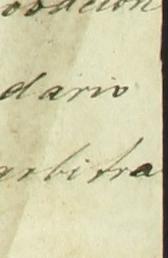 ovacion
dario
arbitra